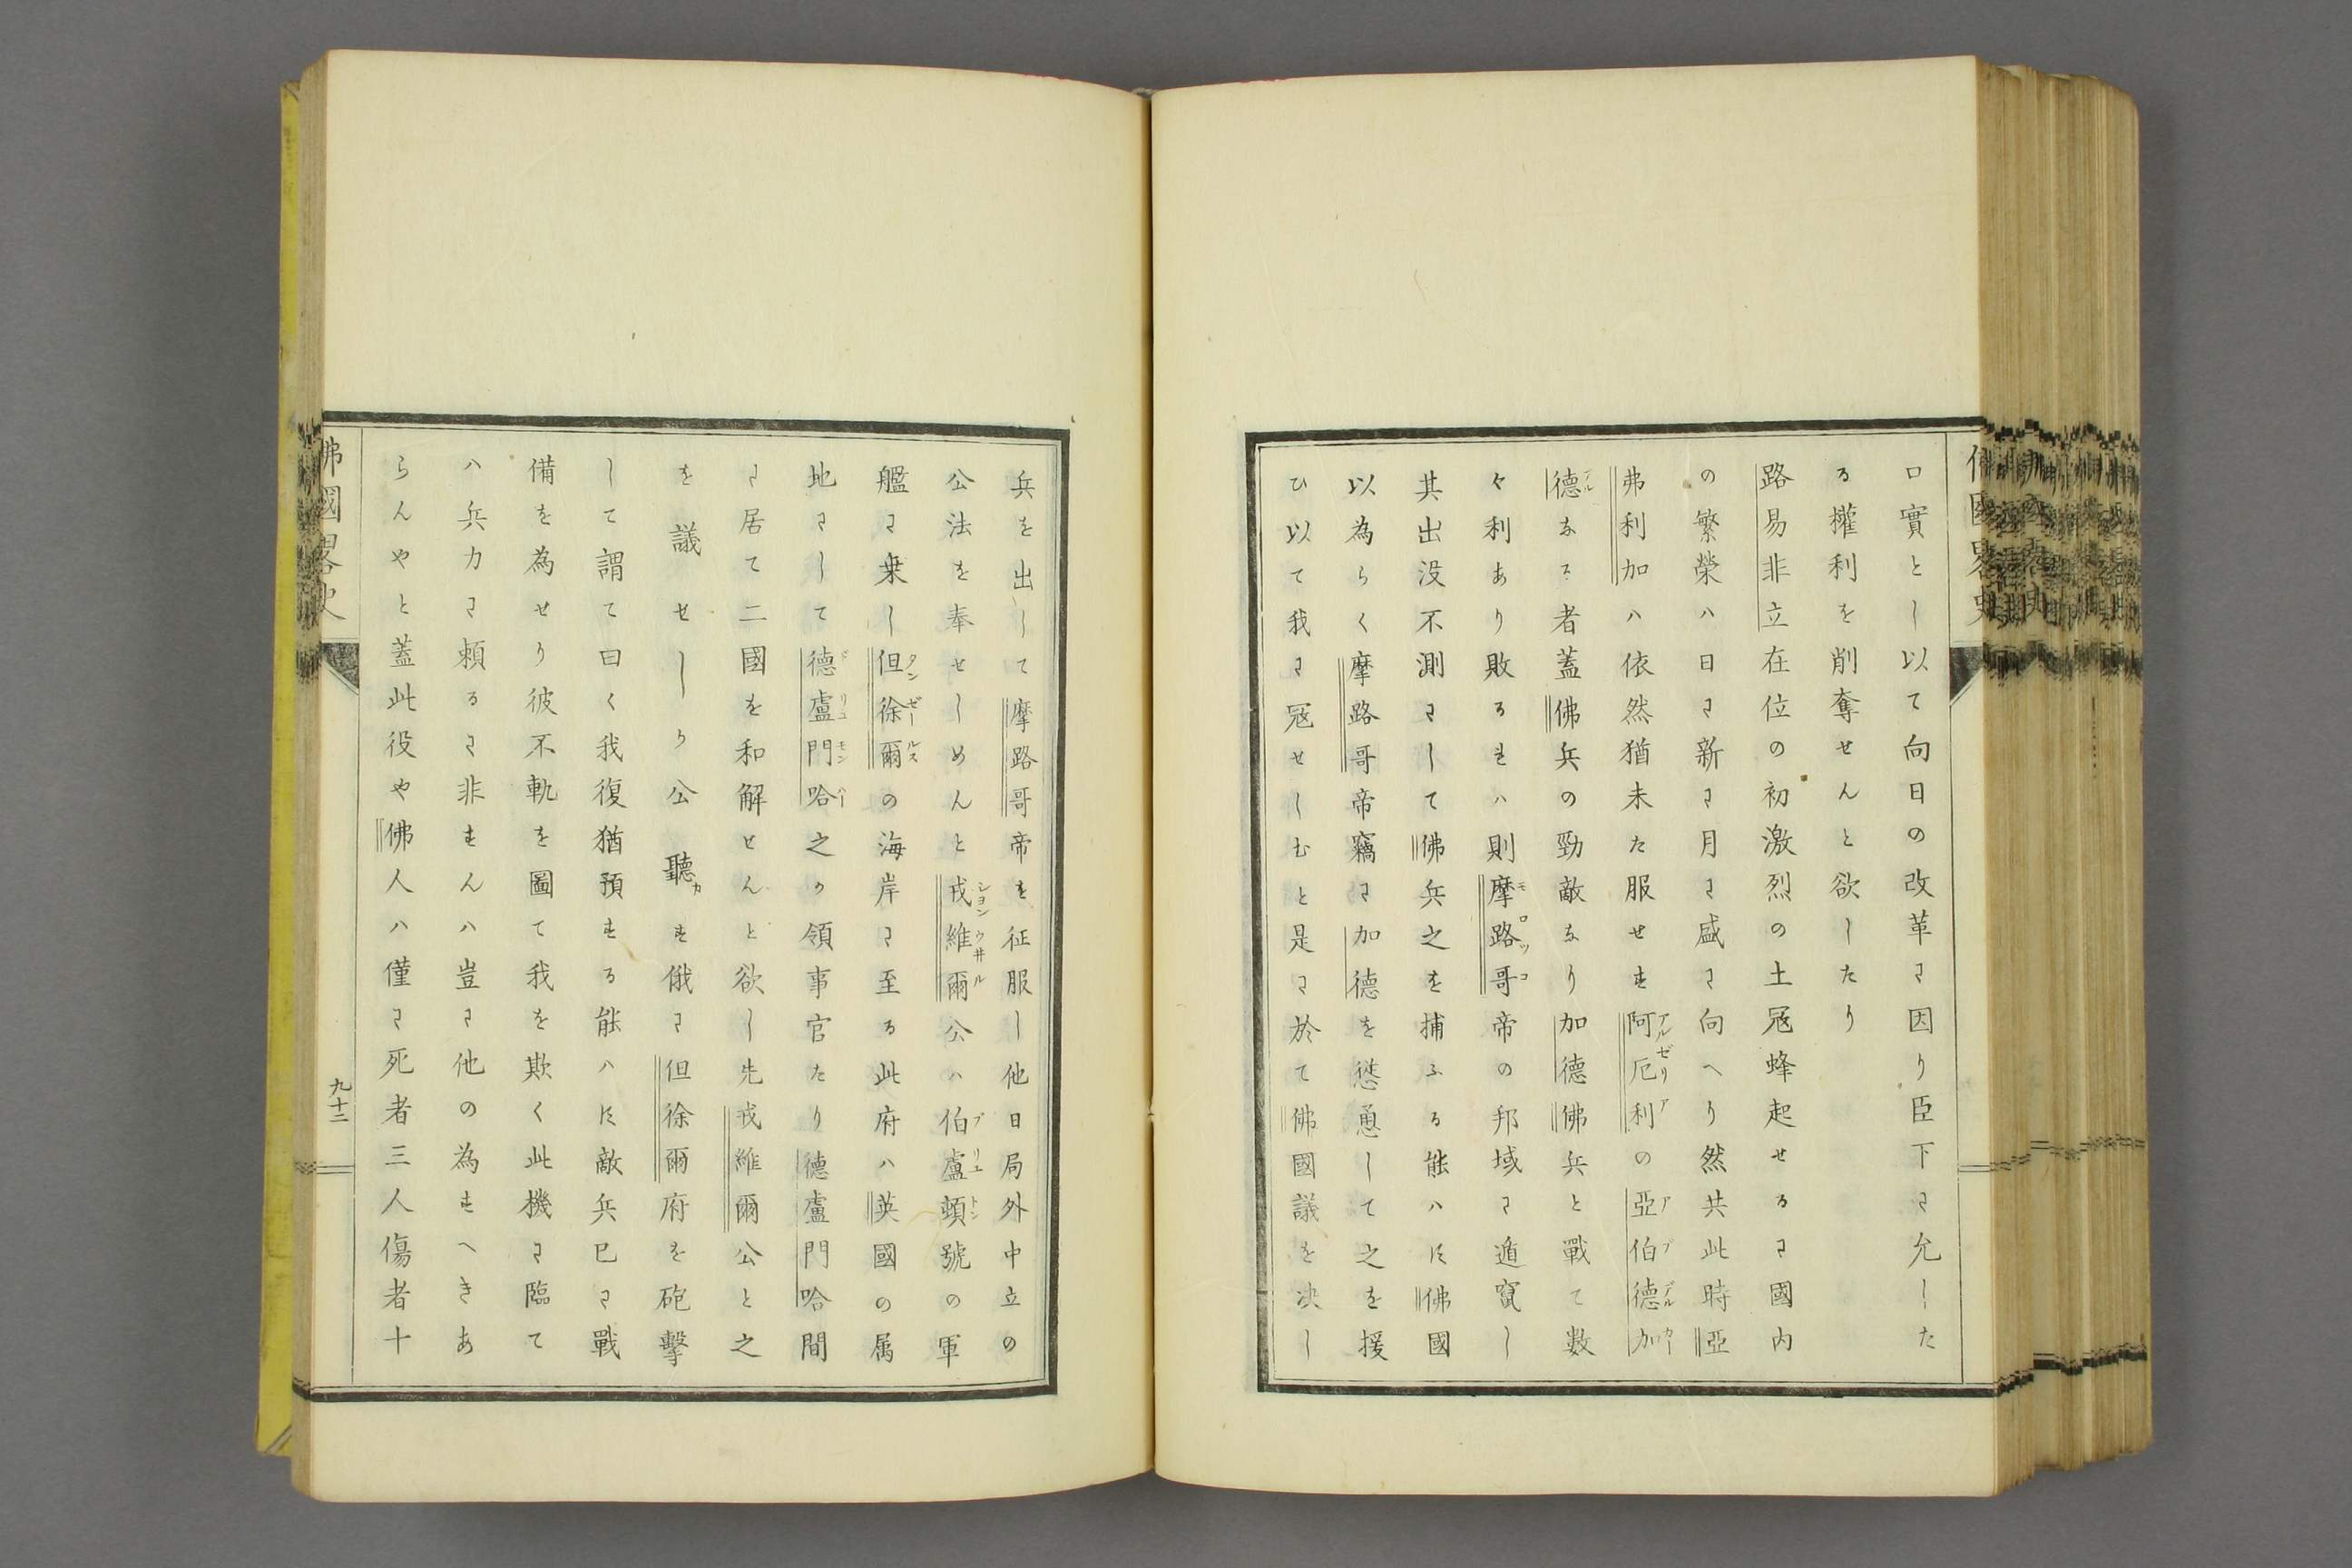 口實とし以て向日の改革に因り臣下に允した
る權利を削奪せんと欲したり
路易非立在位の初激烈の土冦蜂起せるに國内
の繁榮ハ日に新に月に盛に向へり然共此時亞
弗利加ハ依然猶未た服せす阿厄利の亞伯德加
德なる者蓋佛兵の勁敵なり加德佛兵と戰て数
々利あり敗るれハ則摩路哥帝の邦域に遁竄し
其出没不測にして佛兵之を捕ふる能ハす佛國
以為らく摩路哥帝竊に加德を慫慂して之を援
ひ以て我に冦せしむと是に於て佛國議を决し
兵を出して摩路哥帝を征服し他日局外中立の
公法を奉せしめんと戎維爾公ハ伯盧頓號の軍
艦に乗し但徐爾の海岸に至る此府ハ英國の属
地にして德盧門哈之か領事官たり德盧門哈間
に居て二國を和解せんと欲し先戎維爾公と之
を議せしか公聽かす俄に但徐爾府を砲擊
して謂て曰く我復猶預する能ハす敵兵已に戰
備を為せり彼不軌を圖て我を欺く此機に臨て
ハ兵力に頼るに非すんハ豈に他の為すへきあ
らんやと蓋此役や佛人ハ僅に死者三人傷者十
佛國畧史
九十二